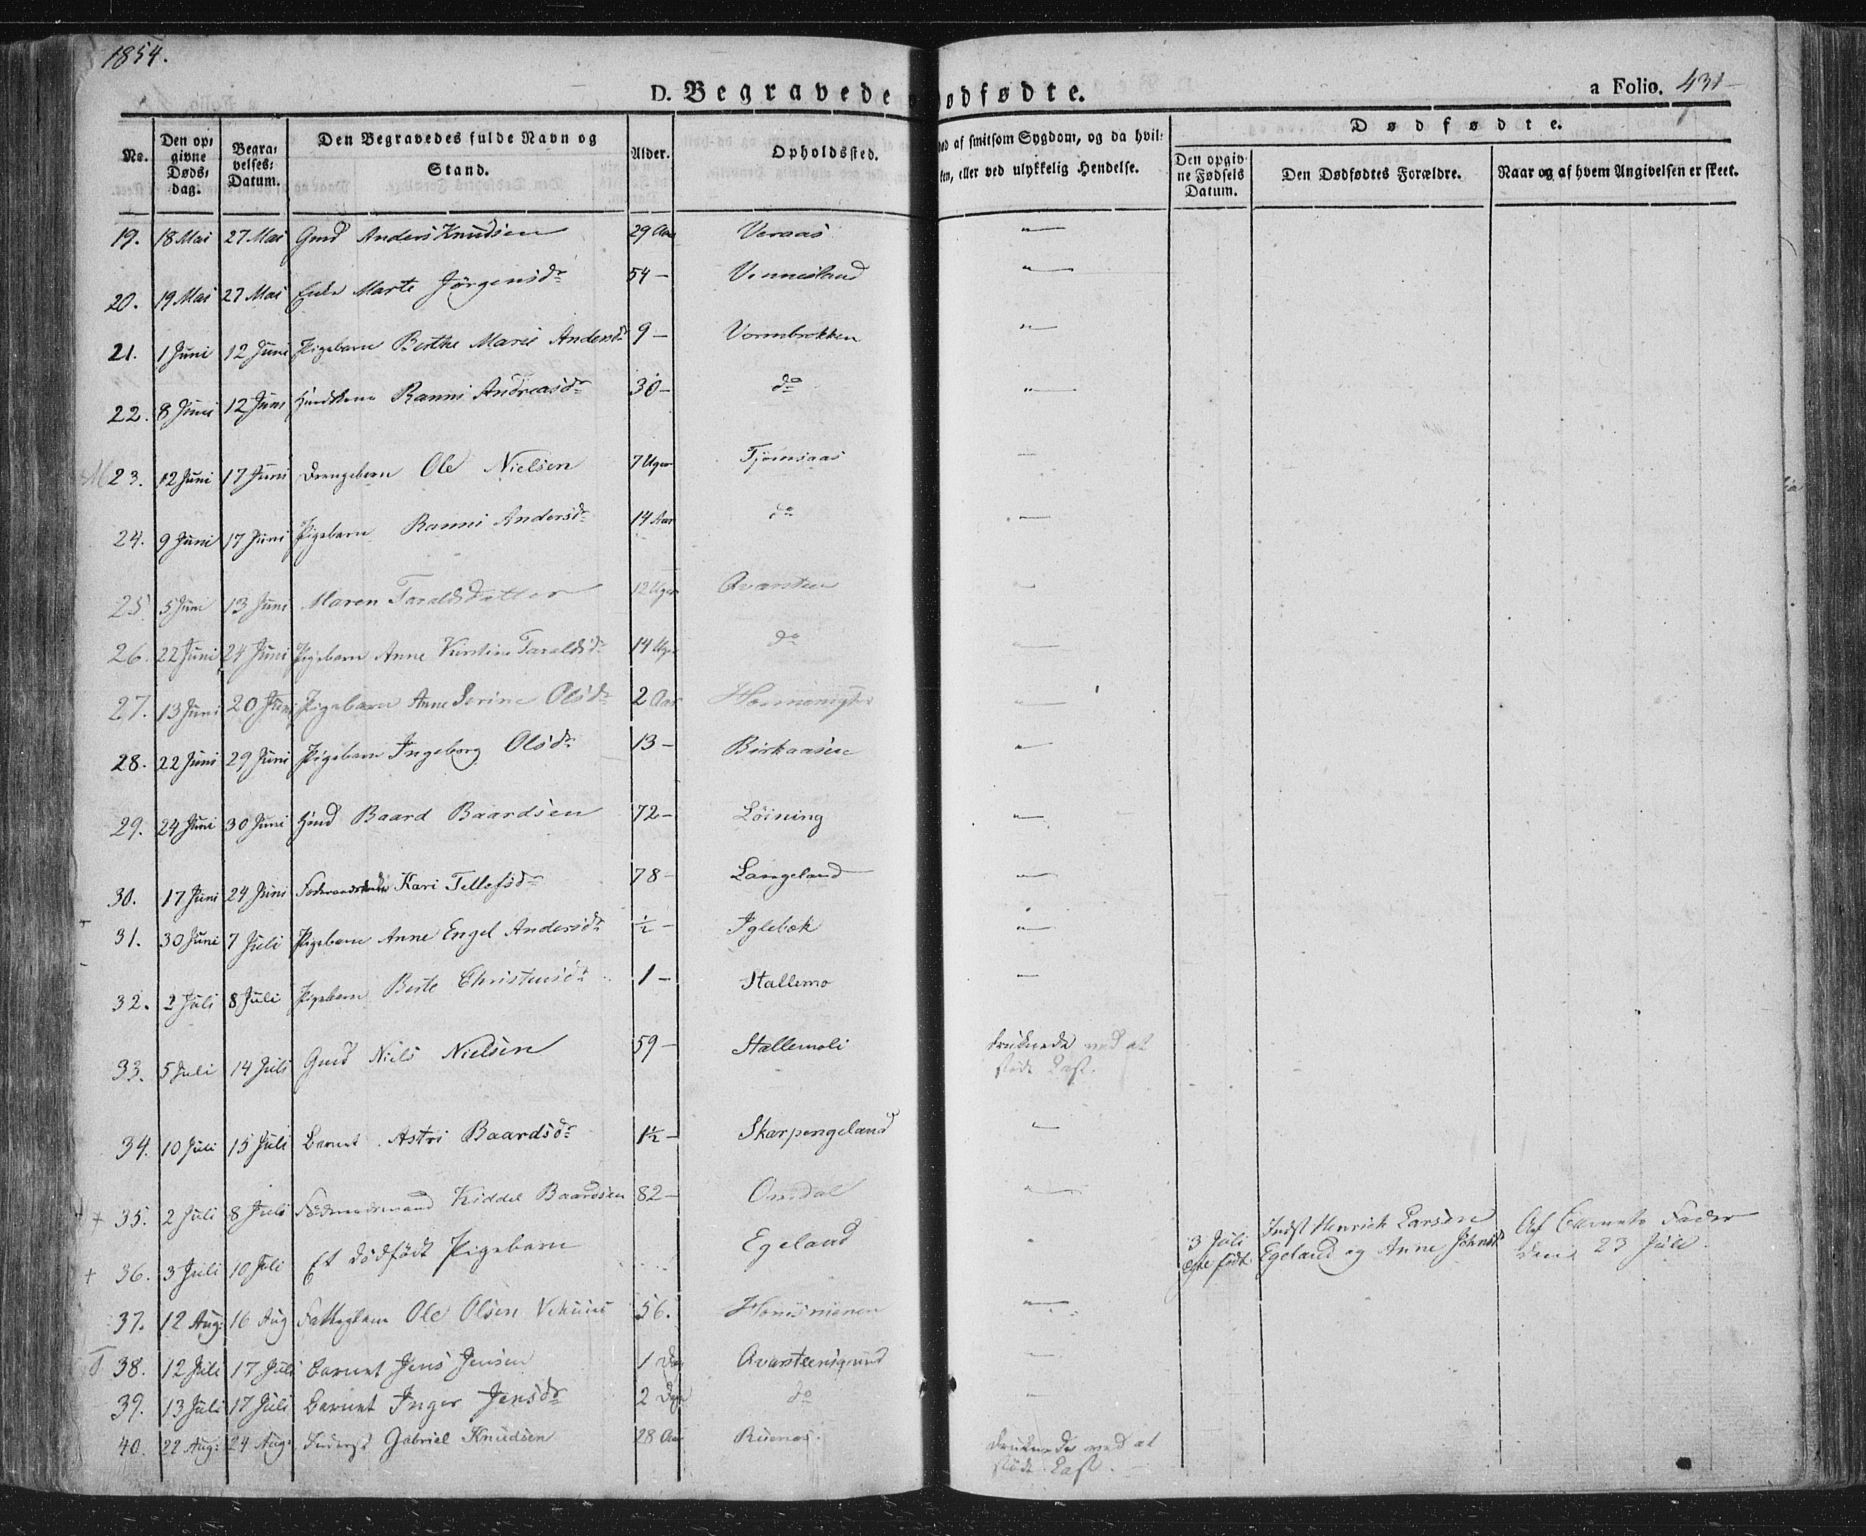 1854.
D. Begravede o
odfødte.
a Folio. 431
No.
Den op=
givne
Døds=
dag.
Begra=
velses=
Datum.
Den Begravedes fulde Navn og
Stand.
Alder.
Opholdssted.
ed af smitsom Sygdom, og da hvil=
ken, eller ved ulykkelig Hendelse.
Dødfødte.
Den opgiv=
ne Fødsels
Datum.
Den Dødfødtes Forældre.
Naar og af hvem Angivelsen er skeet.
19. 18 Mai 27 Mai Gmd Anders Knudsen 29 Aar Veraas "—
20. 19 Mai 27 Mai Enke Marte Jörgensdr 54 — Vennesland "—
21. 1 Juni 12 Juni Pigebarn Berthe Marie Andersdr 9 — Vormbrokken "—
22. 8 Juni 12 Juni Ranni Andreasdr 30 — do "—
23. 12 Juni 17 Juni Drengebarn Ole Nielsen 7 Uger Tjomsaas —
24. 9 Juni 17 Juni Pigebarn Ranni Andersdr 14 Aar do "—
25 5 Juni 13 Juni Maren Taraldsdatter 12 Uger Qvarsten —
26. 22 Juni 24 Juni Pigebarn Anne Kirstine Taraldsdr 14 Uger do —
27. 13 Juni 20 Juni Pigebarn Anne Serine Olsdr 2 Aar —
28. 22 Juni 29 Juni Pigebarn Ingeborg Olsdr 13 — Birkaasen "—
29. 24 Juni 30 Juni Baard Baardsen 72 — Löining "—
30. 17 Juni 24 Juni Kari Tellefsdr 78 — Langeland "—
31. 30 Juni 7 Juli Pigebarn Anne Engel Andersdr ½ — Iglebæk "—
32. 2 Juli 8 Juli Pigebarn Berte Christensdr 1 — Stallemo —
33. 5 Juli 14 Juli Gmd Niels Nielsen 59 — Stallemoli druknede ved at
fløde Last.
34. 10 Juli 15 Juli Barnet Astri Baardsdr 1½ — Skarpengeland "—
+ 35. 2 Juli 8 Juli Födraadsmand Kiddel Baardsen 82 — Omdal "—
+ 36. 3 Juli 10 Juli Et dödfödt Pigebarn Egeland "
3 Juli
födt
Indst Henrich Larsen
Egeland og Anne Johnsdr
Af Barnets Fader
den 23 Juli.
37. 12 Aug: 16 Aug Fattiglem Ole Olsen 56. "—
38. 12 Juli 17 Juli Barnet Jens Jensen 1 Dag Qvarsteensgrund —
39. 13 Juli 17 Juli Barnet Inger Jensdr 2 Dage do —
40. 22 Aug: 24 Aug: Gabriel Knudsen 28 Aar druknede ved at
fløde Last. —